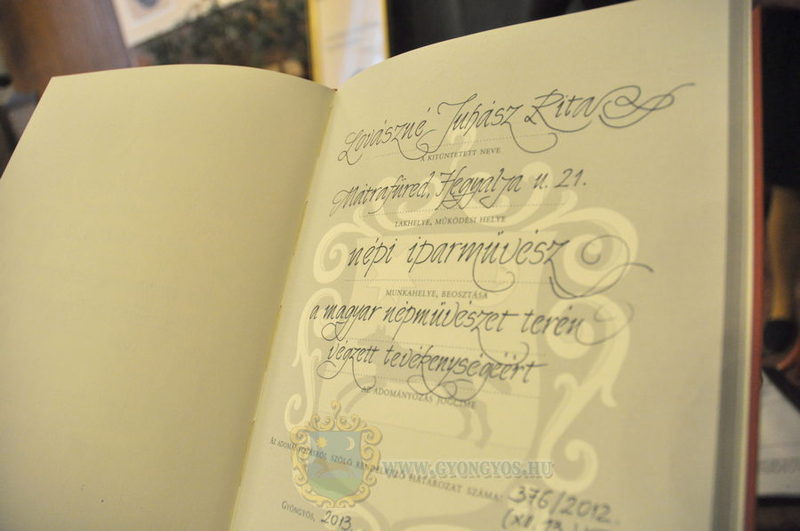 Lovászné Juhász Rita
A KITÜNTETETT NEVE
Mátrafüred, Hegyalja u. 21.
LAKHELYE, MŰKÖDÉSI HELYE
népi iparművész
MUNKAHELYE, BEOSZTÁSA
a magyar népművészet terén
végzett tevékenységéért
AZ ADOMÁNYOZÁS JOGCÍME
AZ ADOMÁNYOZÁSRÓL SZÓLÓ RENDELKEZŐ HATÁROZAT SZÁMA: 376/2012.
WWW.GYONGYOS.HU
(XII. 13.
GYÖNGYÖS, 2013.